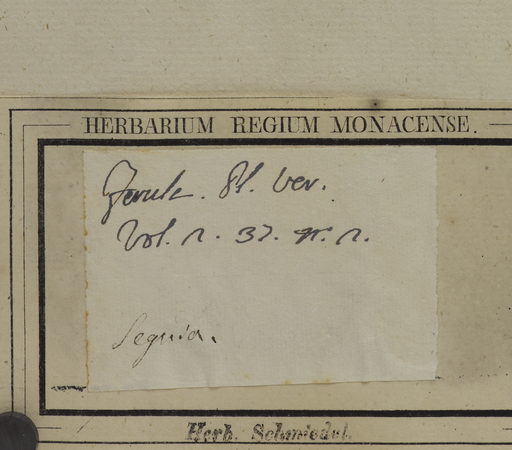 HERBARIUM REGIUM MONACENSE.
Ferula. Pl. Ver.
Vol. 2. 37. nr. 2.
Seguia.
Herb. Schmiedel.